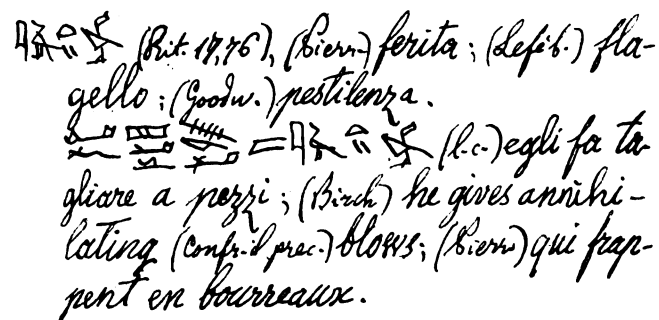 (Rit. 17,76), (Pierr.) ferita; (Leféb.) fla-
gello; (Goodw.) pestilenza.
(l.c.) egli fa ta-
gliare a pezzi; (Birch) he gives annihi-
lating (confr. il prec.) blows; (Pierr.) qui frap-
pent en bourreaux.